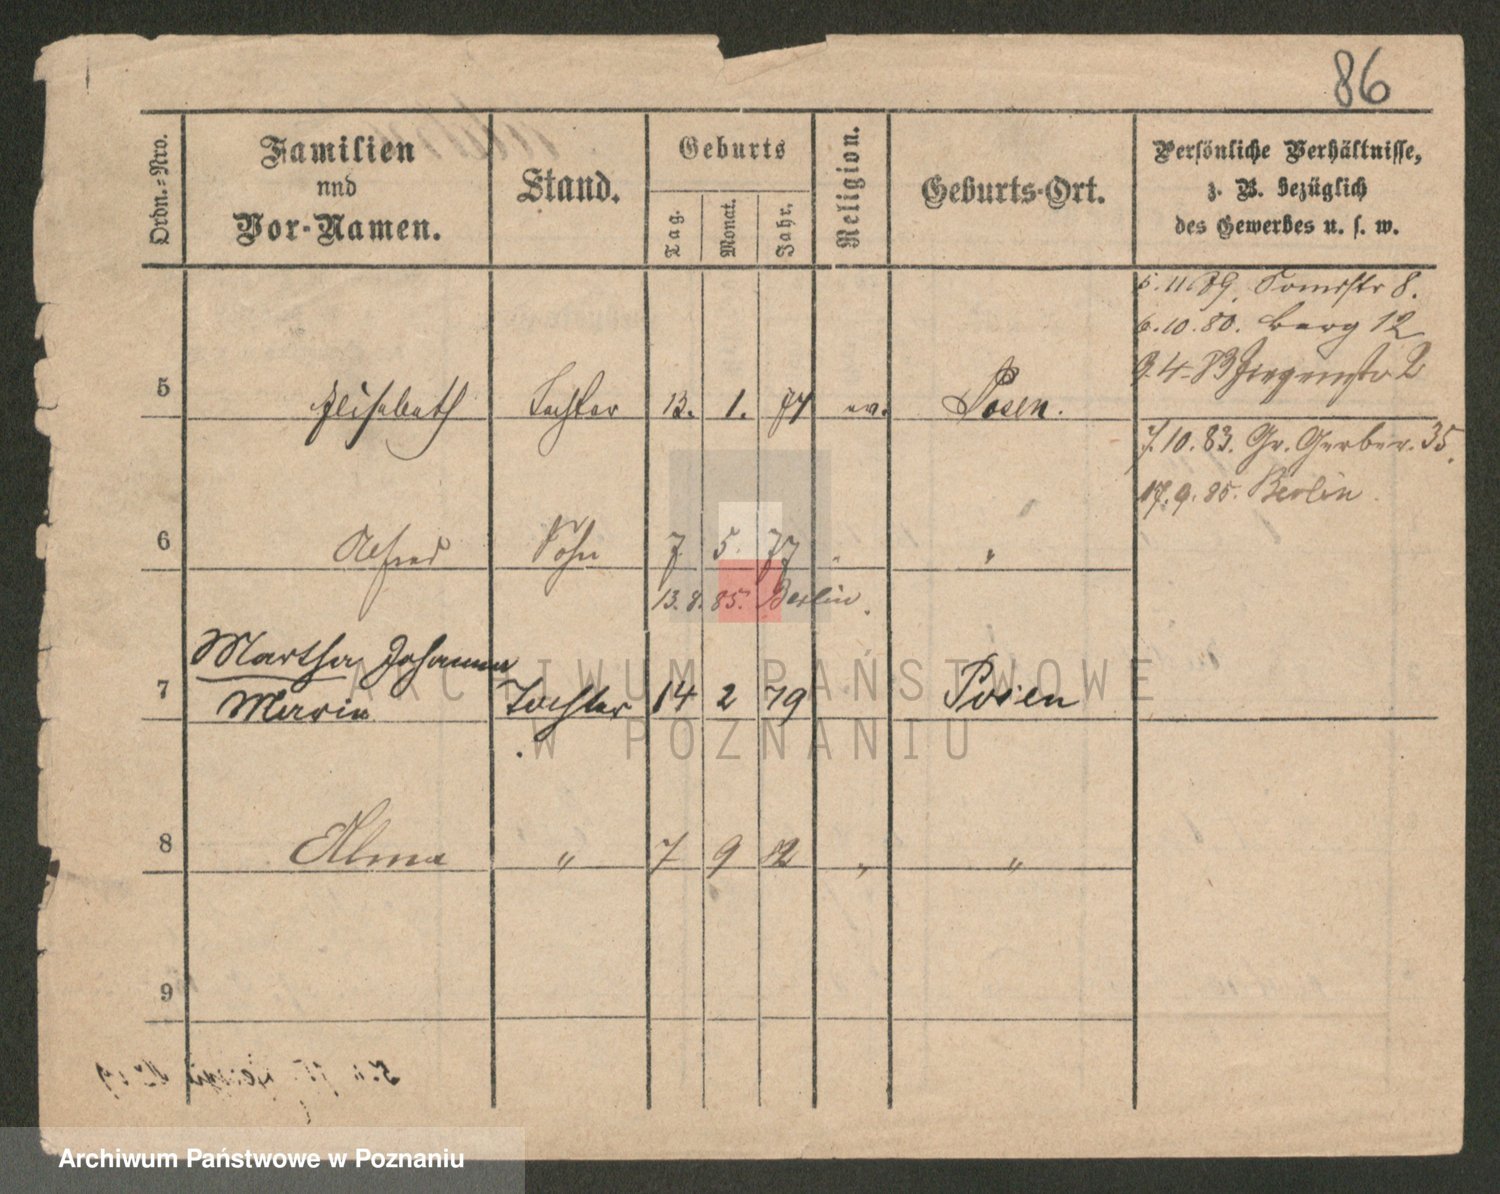 86
Ordn.-Nro.
Familien
und
Vor-Namen.
Stand.
Geburts
Tag.
Monat.
Jahr.
Religion.
Geburts-Ort.
Persönliche Verhältnisse,
z. B. bezüglich
des Gewerbes u. s. w.
5.11.79. Domstr 8.
6.10.80. Berg 12
9.4.83 Ziegenstr 2
5 Elisabeth Tochter 13. 1. 74 ev. Posen.
7.10.83. Gr. Gerber. 35.
17.9.85. Berlin.
6 Alfred Sohn 7 5. 77 " "
13.8.85. Berlin.
Martha Johanna
7 Marie Tochter 14 2 79 Posen
8 Alma " 7 9 82 " "
9
ARCHIWUM PAŃSTWOWE
W POZNANIU
Archiwum Państwowe w Poznaniu